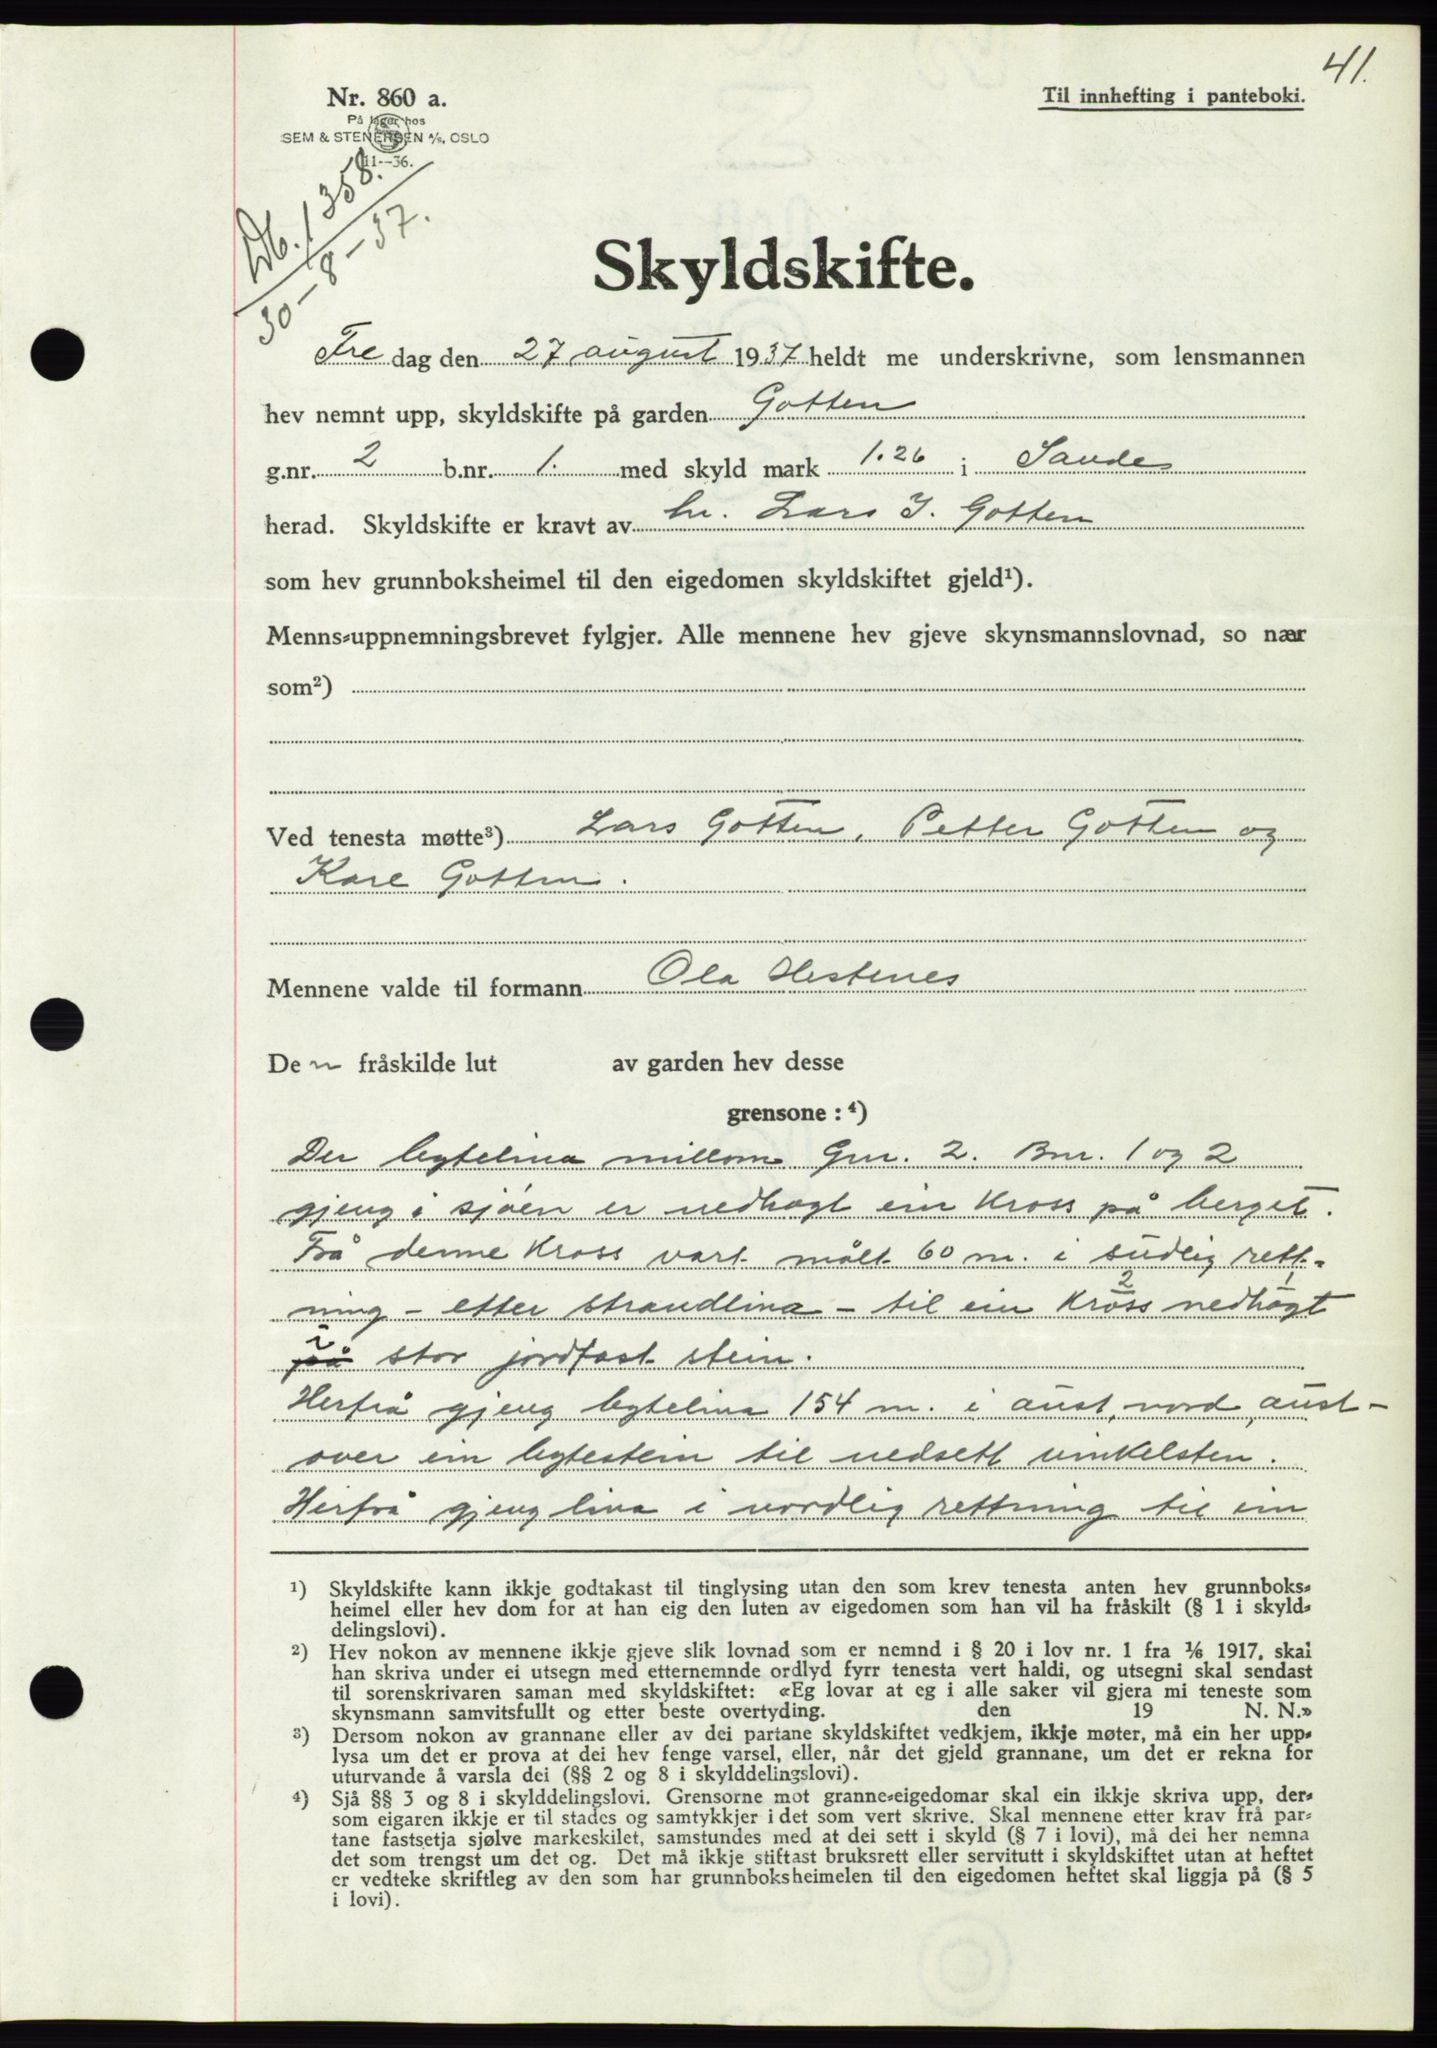 41.
Nr. 860 a.
Til innhefting i panteboki.
På lager hos
SEM & STENERSEN A/S, OSLO
11--36.
Db. 1358.
30-8-37.
Skyldskifte.
Fre dag den 27 august 1937 heldt me underskrivne, som lensmannen
hev nemnt upp, skyldskifte på garden Gotten
g.nr. 2 b.nr. 1. med skyld mark 1.26 i Sande
herad. Skyldskifte er kravt av hr. Lars J. Gotten
som hev grunnboksheimel til den eigedomen skyldskiftet gjeld¹).
Menns=uppnemningsbrevet fylgjer. Alle mennene hev gjeve skynsmannslovnad, so nær
som²)
Ved tenesta møtte³) Lars Gotten, Petter Gotten og
Kare Gotten.
Mennene valde til formann Ola Hestenes
De n fråskilde lut av garden hev desse
grensone : ⁴)
Der bytelina millom Gnr. 2. Bnr. 1 og 2
gjeng i sjöen er nedhogt ein Kross på berget.
Frå denne Kross vart målt 60 m. i südlig rett-
2 1
ning - etter strandlina - til ein Kross nedhogt
i
på stor jordfast stein.
Herfrå gjeng bytelina 154 m. i aust, nord, aust-
over ein bytestein til nedsett vinkelsten.
Herfrå gjeng lina i nordlig rettning til ein
¹) Skyldskifte kann ikkje godtakast til tinglysing utan den som krev tenesta anten hev grunnboks=
heimel eller hev dom for at han eig den luten av eigedomen som han vil ha fråskilt (§ 1 i skyld=
delingslovi).
²) Hev nokon av mennene ikkje gjeve slik lovnad som er nemnd i § 20 i lov nr. 1 fra 1/6 1917, skal
han skriva under ei utsegn med etternemnde ordlyd fyrr tenesta vert haldi, og utsegni skal sendast
til sorenskrivaren saman med skyldskiftet: «Eg lovar at eg i alle saker vil gjera mi teneste som
skynsmann samvitsfullt og etter beste overtyding. den 19 N. N.»
³) Dersom nokon av grannane eller av dei partane skyldskiftet vedkjem, ikkje møter, må ein her upp=
lysa um det er prova at dei hev fenge varsel, eller, når det gjeld grannane, um det er rekna for
uturvande å varsla dei (§§ 2 og 8 i skylddelingslovi).
⁴) Sjå §§ 3 og 8 i skylddelingslovi. Grensorne mot granne=eigedomar skal ein ikkje skriva upp, der=
som eigaren ikkje er til stades og samtykkjer i det som vert skrive. Skal mennene etter krav frå par=
tane fastsetja sjølve markeskilet, samstundes med at dei sett i skyld (§ 7 i lovi), må dei her nemna
det som trengst um det og. Det må ikkje stiftast bruksrett eller servitutt i skyldskiftet utan at heftet
er vedteke skriftleg av den som har grunnboksheimelen til den eigedomen heftet skal liggja på (§ 5
i lovi).